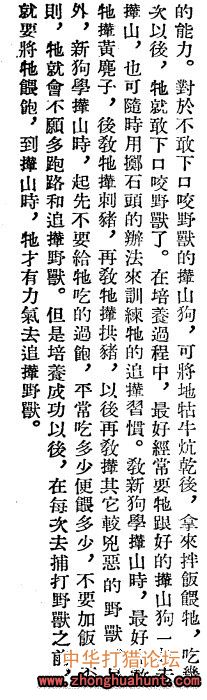 的能力。對於不敢下口咬野獸的攆山狗，可將地牯牛炕乾後，拿來拌飯餵牠，吃幾
次以後，牠就敢下口咬野獸了。在培養過程中，最好經常要牠跟好的攆山狗一
攆山，也可隨時用擲石頭的辦法來訓練牠的追攆習慣。敎新狗學攆山時，最好
牠攆黃麂子，後敎牠攆刺豬，再敎牠攆拱豬，以後再敎攆其它較兇惡的野獸
外，新狗學攆山時，起先不要給牠吃的過飽，平常吃多少便餵多少，不要加飯
則，牠就會不願多跑路和追攆野獸。但是培養成功以後，在每次去捕打野獸之前，
就要將牠餵飽，到攆山時，牠才有力氣去追攆野獸。
中华打猎论坛
www.zhonghuahunt.com